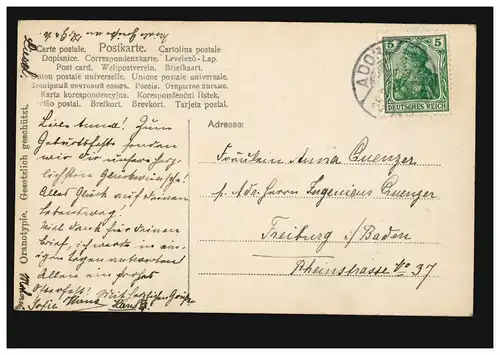 Carte postale. Postkarte. Cartolina postale
Dopisnice. Correspondenzkarte. Levelező-Lap.
Post card. Weltpostverein. Briefkaart.
Union postale universelle. Unione postale universale.
Всемірный почтовый союзъ. Россія. Открытое письмо.
Karta korespondencyjna. Korespondenční lístek.
Brefkort. Brevkort. Tarjeta postal.
Oranotypie. Gesetzlich geschützt.
5 5
DEUTSCHES REICH
ADO
Adresse:
Liebe Anna! Zum
Geburtsfeste senden
wir dir unsere herz-
lichsten Glückwünsche!
Alles Glück auf deinem
Lebensweg!
Viel Dank für deinen
Brief, ich werde in ei-
nigen Tagen antworten
Allen ein frohes
Osterfest! Mit herzlichen Grüßen
Sofie Hans
Fräulein Anna Cuenzer
p. Adr. Herrn Ingenieur Cuenzer
Freiburg i/Baden
Rheinstrasse No 37